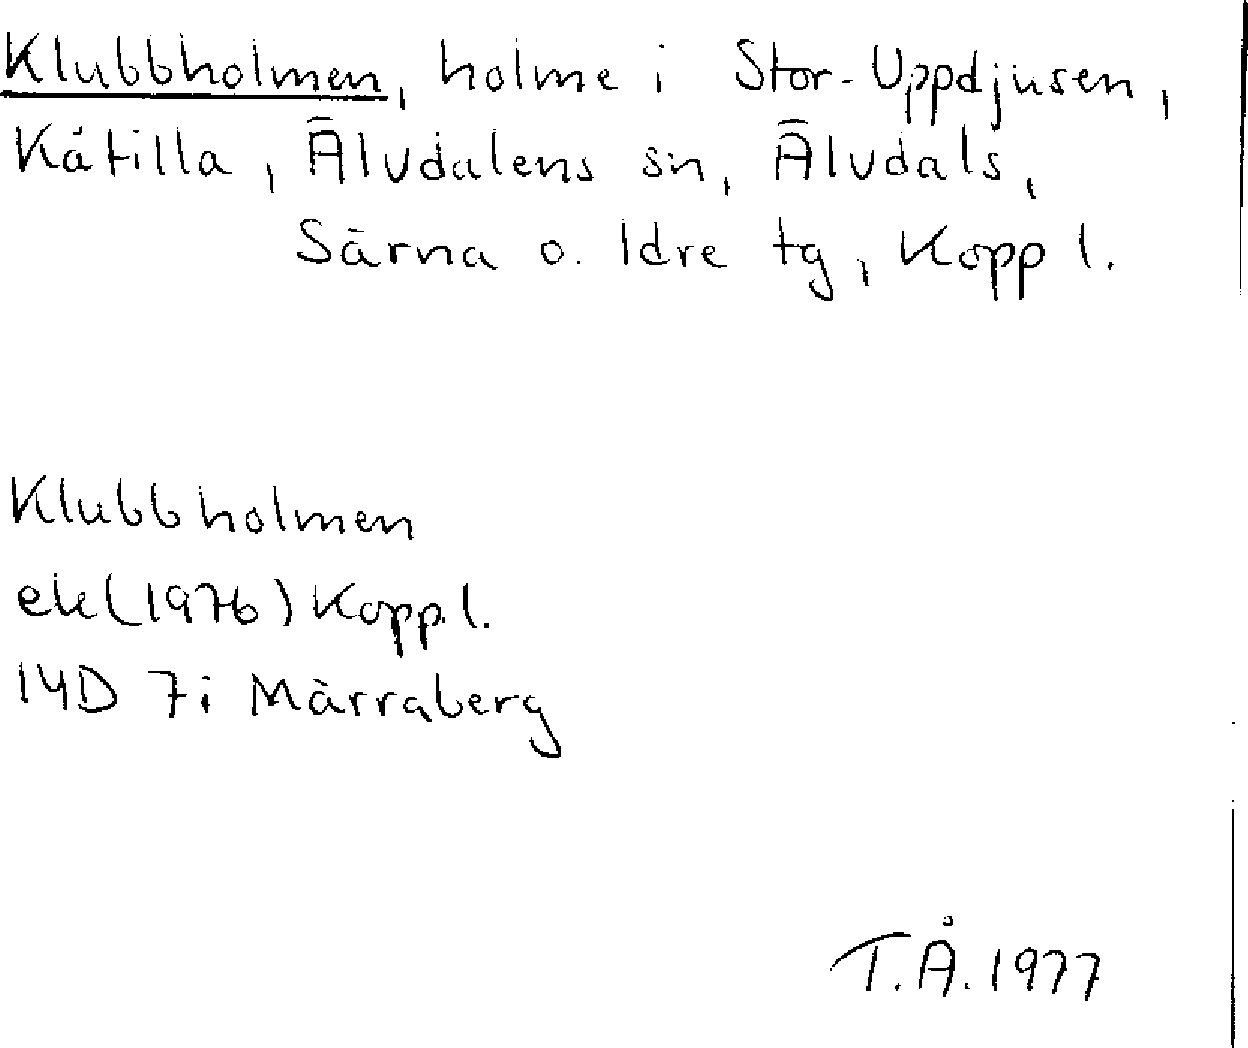 Klubbholmen, holme i Stor-Uppdjusen,
Kåtilla, Älvdalens sn, Älvdals,
Särna o. Idre tg, Kopp l.
Klubbholmen
ek (1976) Kopp. l.
14D 7i Märraberg
T.Å. 1977